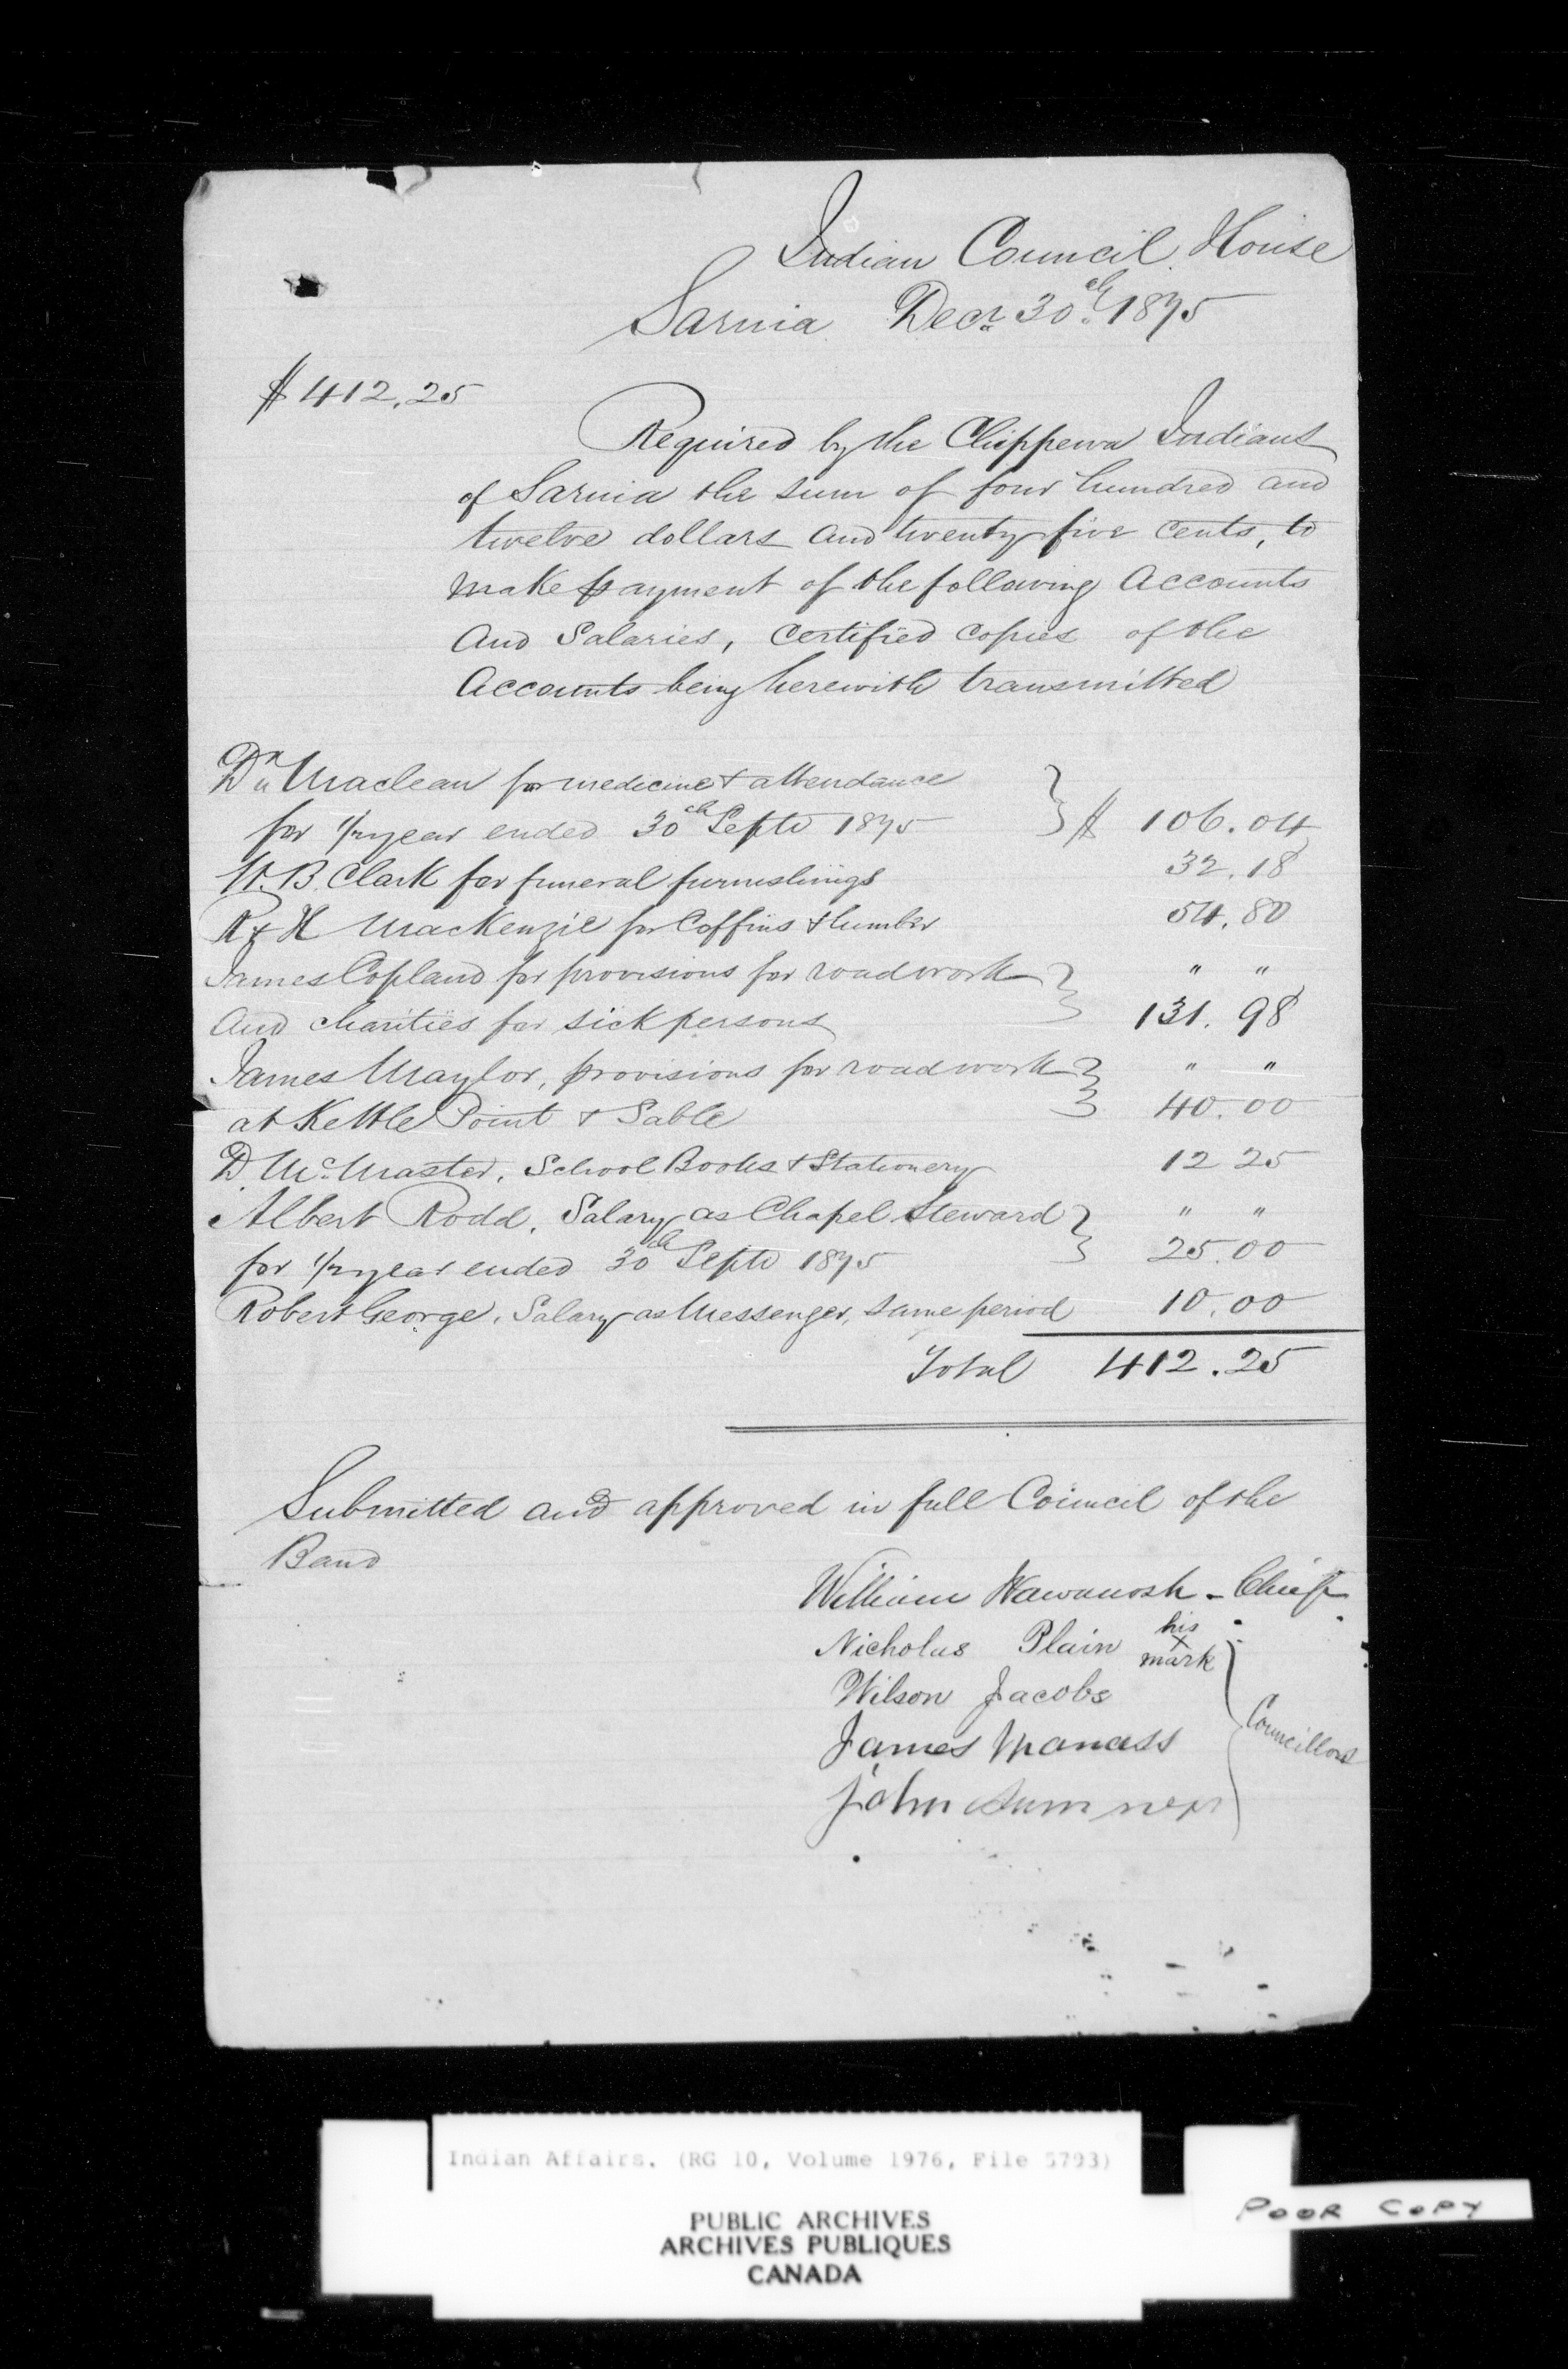 Indian Council House
Sarnia Decr. 30th 1875
$412.25
Required by the Chippewa Indians
of Sarnia the sum of four hundred and
twelve dollars and twenty five cents, to
make payment of the following Accounts
and Salaries, certified copies of the
Accounts being herewith transmitted
Dr Maclean for medicine & attendance
for 1/2 year ended 30th Septr 1875 } $ 106.04
W. B. Clark for funeral furnishings 32.18
R & H MacKenzie for Coffins & lumber 54.80
James Copland for provisions for road work } " "
and charities for sick persons 131.98
James Maylor, provisions for road work } " "
at Kettle Point & Sable 40.00
D. McMaster, School Books & Stationery 12 25
Albert Rodd, Salary as Chapel Steward } " "
for 1/2 year ended 30th Septr 1875 25.00
Robert George, Salary as Messenger, same period 10.00
Total 412.25
Submitted and approved in full Council of the
Band
William Wawanosh - Chief
Nicholas Plain his x mark
Wilson Jacobs
James Manass
John Sumner
Councillors
Indian Affairs. (RG 10, Volume 1976, File 5793)
PUBLIC ARCHIVES
ARCHIVES PUBLIQUES
CANADA
POOR COPY